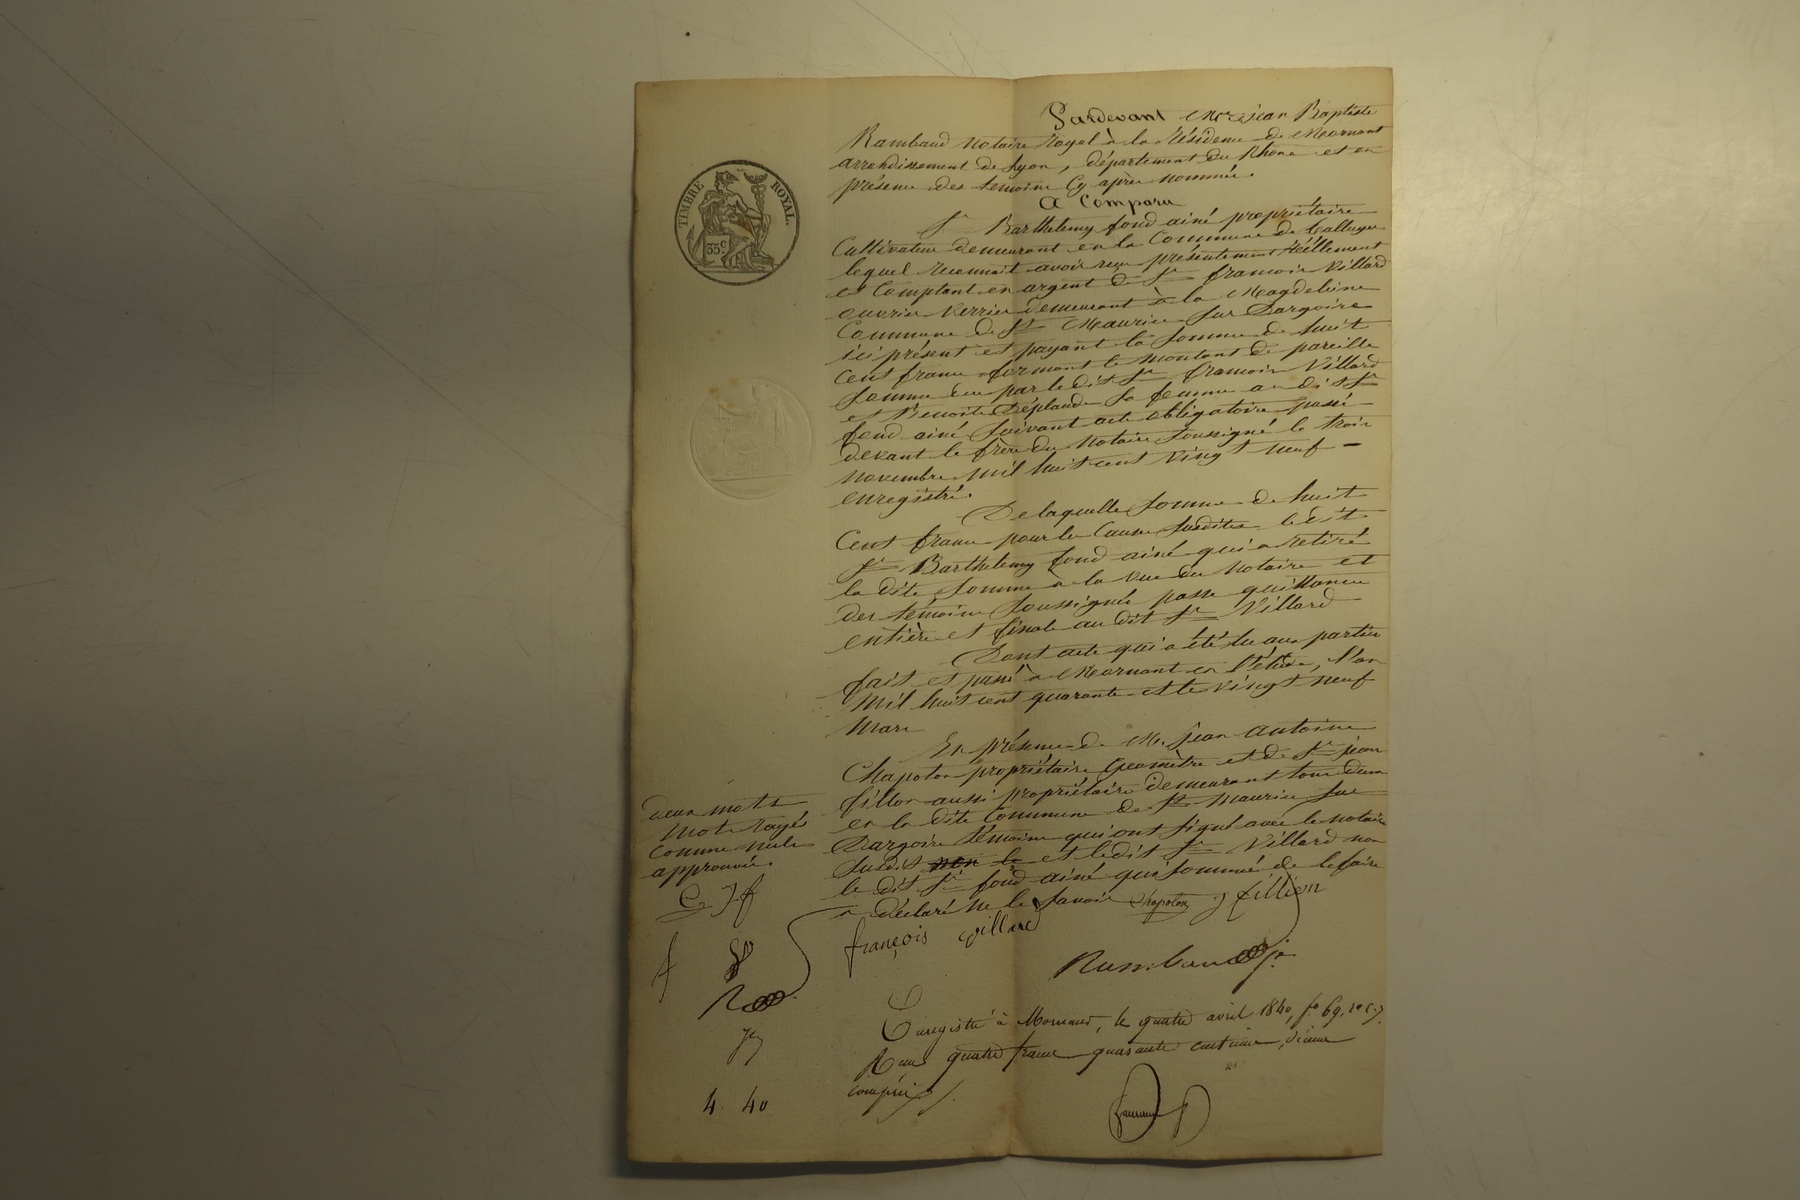 TIMBRE ROYAL
35 c.
Pardevant Me Jean Baptiste
Rambaud notaire royal à la résidence de Mornant
arrondissement de Lyon, département du Rhône et en
présence des témoins cy après nommés.
A Comparu
Sr Barthelemy fond ainé propriétaire
Cultivateur demeurant en la Commune de
lequel reconnait avoir reçu présentement réellement
et Comptant en argent de Sr francois Villard
ouvrier verrier demeurant à la Magdeleine
Commune de St Maurice sur Dargoire
ici présent et payant la somme de huit
cent francs formant le montant de pareille
somme due par le dit Sr francois Villard
et Benoite sa femme au dit Sr
fond ainé suivant acte obligatoire passé
devant le frère du notaire soussigné le trois
novembre mil huit cent vingt neuf —
enregistré.
De laquelle somme de huit
Cent francs pour les causes susdites le dit
Sr Barthelemy fond ainé qui a retiré
la dite somme à la vue du notaire et
des témoins soussignés passe quittance
entière et finale au dit Sr Villard
Dont acte qui a été lu aux parties
fait et passé à Mornant en l'étude, l'an
mil huit cent quarante et le vingt neuf
mars
En présence de M. jean antoine
Chapolon propriétaire Géomètre et de Sr jean
fillon aussi propriétaire demeurant tous deux
en la dite Commune de St Maurice sur
Dargoire témoins qui ont signé avec le notaire
susdit non le et le dit Sr Villard non
le dit Sr fond ainé qui sommé de le faire
a déclaré ne le savoir Chapolon j fillion
françois villard
Rambaud je
deux mots
mots rayés
comme nuls
approuvés.
C. J f
Enregistré à Mornant, le quatre avril 1840, fo 69, ro c. 7
Reçu quatre francs quarante centimes, dixième
compris
4. 40